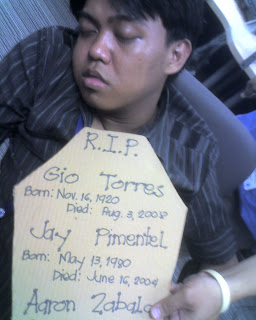 R.I.P.
Gio Torres
Born: Nov. 16, 1920
Died: Aug. 3, 2008
Jay Pimentel
Born: May 13, 1980
Died: June 16, 2004
Aaron Zabala